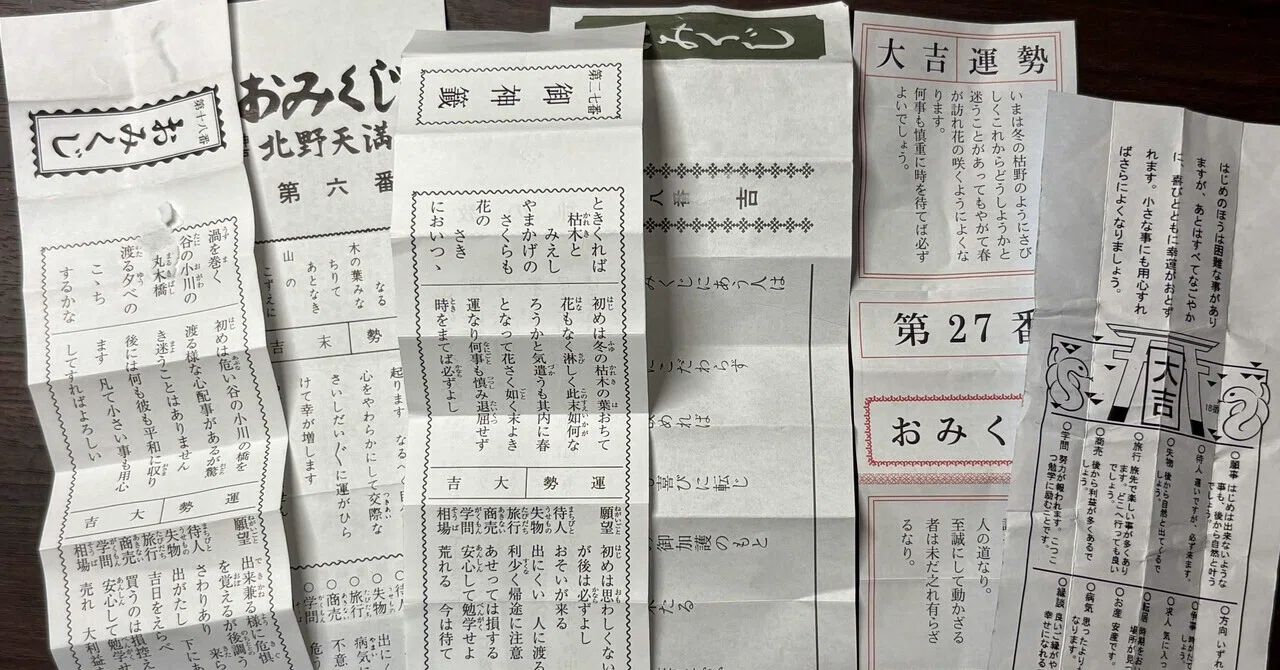 第十八番
おみくじ
渦を巻く
谷の小川の
丸木橋
渡る夕べの
こゝち
するかな
初めは危い谷の小川の橋を
渡る様な心配事があるが驚
き迷うことはありません
後には何も彼も平和に収り
ます 凡て小さい事も用心
してすればよろしい
運勢 大吉
願望 出来兼る様に危惧
を覚えるが後調う
待人 さわりあり 来ら
失物 出がたし 下にあ
旅行 吉日をえらべ
商売 買うのは損控え
学問 安心して勉学
相場 売れ 大利益
おみくじ
北野天満
第六番
木の葉みな
ちりて
あとなき
山の
こずえに
なる
勢
末
吉
起ります なるべ
心をやわらかにして交際な
さいしだい〳〵に運がひら
けて幸が増します
○待人
○失物 出に
○病気
○旅行 不意
○商売
○学問 危う
第二七番
御神籤
ときくれば
枯木と
みえし
やまかげの
さくらも
花の
さき
においつゝ
初めは冬の枯木の葉おちて
花もなく淋しく此末如何な
ろうかと気遣うも其内に春
となって花さく如く末よき
運なり何事も慎み退屈せず
時をまてば必ずよし
運勢 大吉
願望 初めは思わしくない
が後は必ずよし
待人 おそいが来る
失物 出にくい 人に渡る
旅行 利少く帰途に注意
商売 あせっては損する
学問 安心して勉学せよ
相場 荒れる 今は待て
みくじ
八番 吉
みくじにあう人は
にこだわらず
あれば
喜びに転じ
御加護のもと
たる
大吉運勢
いまは冬の枯野のようにさび
しくこれからどうしようかと
迷うことがあってもやがて春
が訪れ花の咲くようによくな
ります。
何事も慎重に時を待てば必ず
よいでしょう。
第27番
おみく
人の道なり。
至誠にして動かざる
者は未だ之れ有らざ
るなり。
はじめのほうは困難な事があり
ますが、あとはすべてなごやか
に、喜びとともに幸運がおとず
れます。小さな事にも用心すれ
ばさらによくなりましょう。
大吉
18番
○願事 はじめは出来ないような
事も、後から自然と叶う
でしょう。
○待人 遅いですが、必ず来ます。
○失物 後から自然と出てくるで
しょう。
○旅行 旅先で楽しい事が多くあり
ます。どこへ行っても良い
でしょう。
○商売 後から利益が多くあるで
しょう。
○学問 努力が報われます。こつこ
つ勉学に励むことです。
○方向 いず
○争事 時がた
しょう。
○転居 時期をお
場所が
○求人 気に入っ
○お産 安産です。
○病気 思ったより
なります。
○縁談 良いご縁がや
幸せになれる